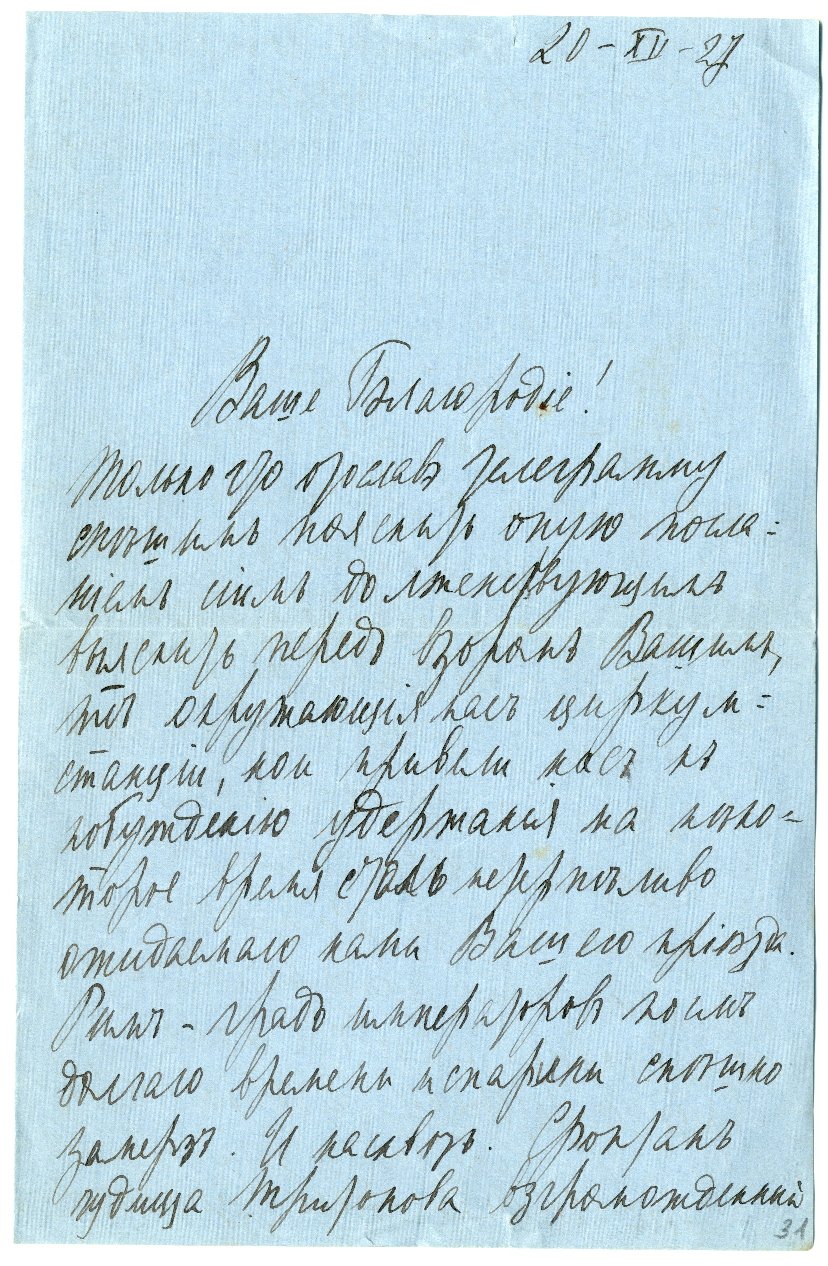 20-XII-27
Ваше Благородіе!
Только что отославъ телеграмму
спѣшимъ пояснить оную посла=
ніемъ симъ долженствующимъ
выяснить передъ взоромъ Вашимъ,
тѣ окружающія насъ циркум=
станціи, кои привели насъ къ
побужденію удержанія на нѣко=
торое время столь нетерпѣливо
ожидаемаго нами Вашего пріѣзда.
Римъ - градъ императоровъ послѣ
долгаго времени испарени спѣшно
замерзъ. И насквозь. Фонтанъ
чудища Тритонова взгроможденный
31